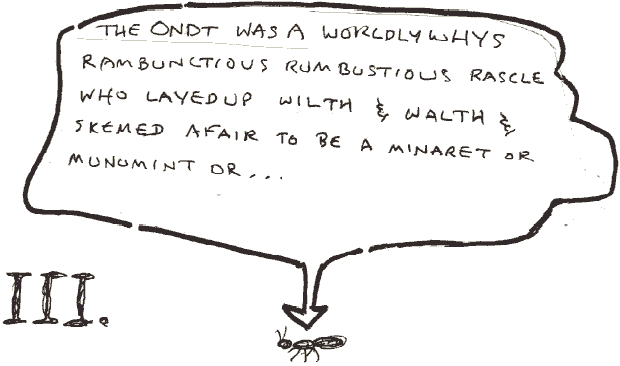 THE ONDT WAS A WORLDLYWHYS
RAMBUNCTIOUS RUMBUSTIOUS RASCLE
WHO LAYEDUP WILTH & WALTH &
SKEMED AFAIR TO BE A MINARET OR
MUNUMINT OR...
III.